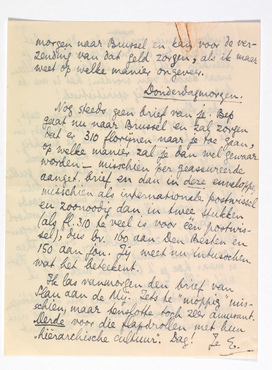 morgen naar Brussel en kan voor de ver-
zending van dat geld zorgen, als ik maar
weet op welke manier ongeveer.
Donderdagmorgen.
Nog steeds geen brief van je. Bep
gaat nu naar Brussel en zal zorgen
dat er 310 florijnen naar je toe gaan,
op welke manier zal je dan wel gewaar
worden – misschien per geassureerde
aanget. brief en dan in deze enveloppe,
misschien als internationale postwissel
en zoonoodig dan in twee stukken
(als fl. 310 te veel is voor één postwis-
sel), dus bv. 160 aan Den Besten en
150 aan jou. Jij weet nu intusschen
wat het beteekent.
Ik las vanmorgen den brief van
aan de Mij. Iets te "moppig" mis-
schien, maar tenslotte toch zeer amusant.
voor die flapdrollen met hun
"hiërarchische cultuur". Dag! Je E.